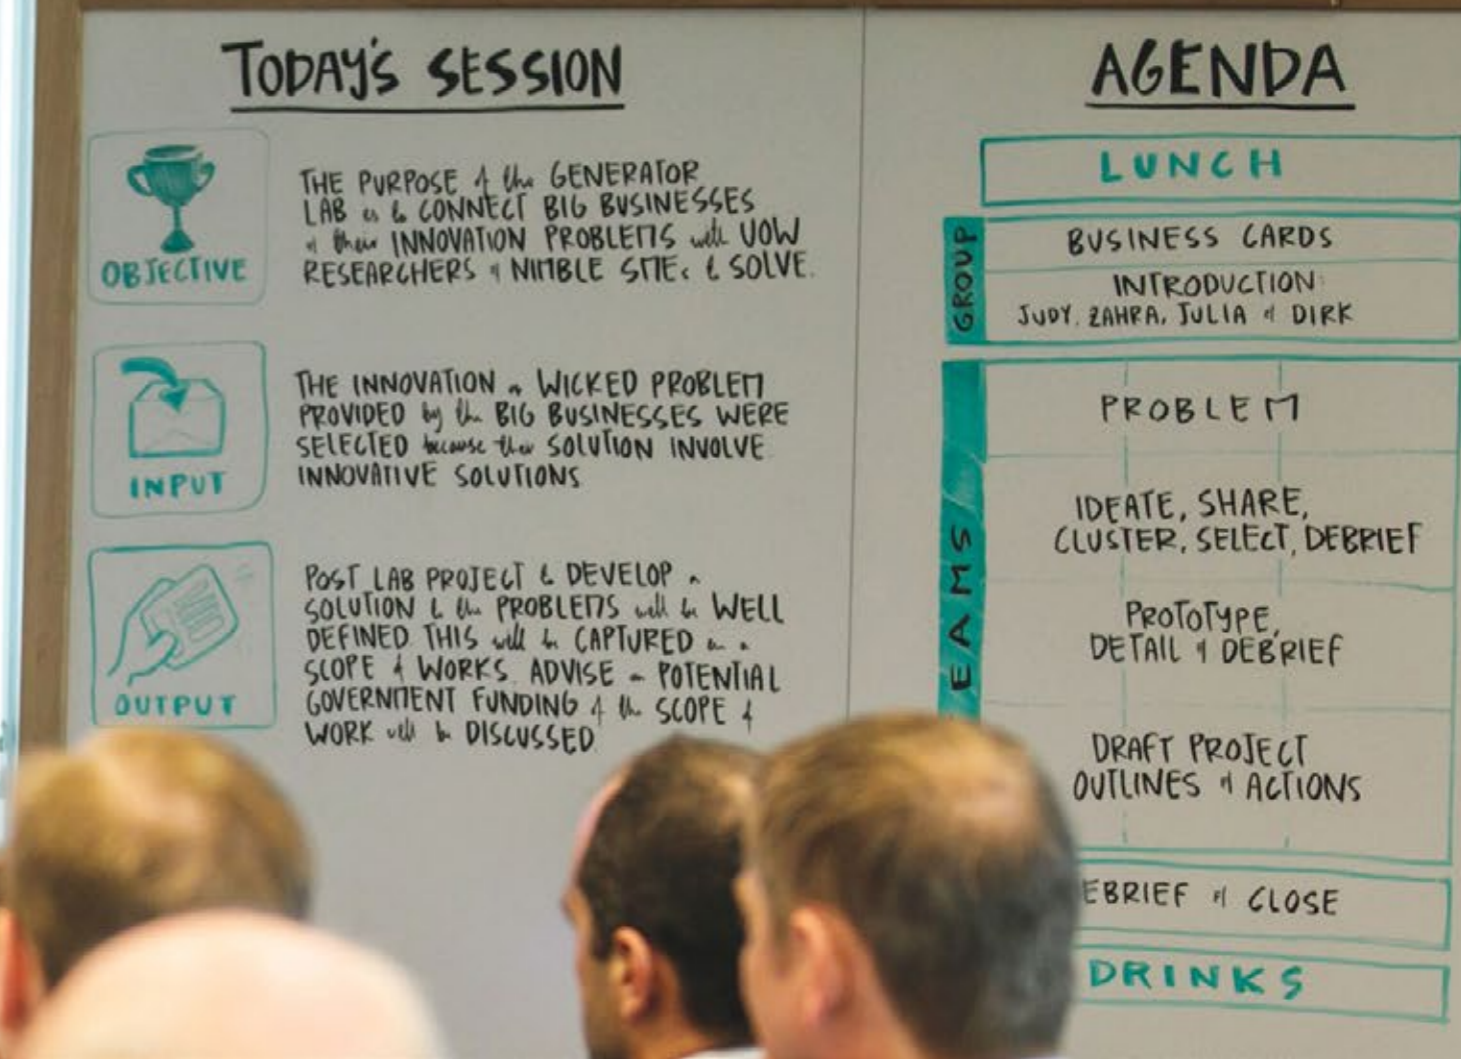 TODAY'S SESSION
OBJECTIVE
THE PURPOSE of the GENERATOR
LAB is to CONNECT BIG BUSINESSES
& their INNOVATION PROBLEMS with UOW
RESEARCHERS & NIMBLE SMEs to SOLVE.
INPUT
THE INNOVATION or WICKED PROBLEM
PROVIDED by the BIG BUSINESSES WERE
SELECTED because their SOLUTION INVOLVE
INNOVATIVE SOLUTIONS
OUTPUT
POST LAB PROJECT to DEVELOP a
SOLUTION to the PROBLEMS will be WELL
DEFINED. THIS will be CAPTURED in a
SCOPE of WORKS. ADVISE on POTENTIAL
GOVERNMENT FUNDING of the SCOPE of
WORK will be DISCUSSED
AGENDA
LUNCH
GROUP
BUSINESS CARDS
INTRODUCTION:
JUDY, ZAHRA, JULIA & DIRK
EAMS
PROBLEM
IDEATE, SHARE,
CLUSTER, SELECT, DEBRIEF
PROTOTYPE,
DETAIL & DEBRIEF
DRAFT PROJECT
OUTLINES & ACTIONS
EBRIEF & CLOSE
DRINKS